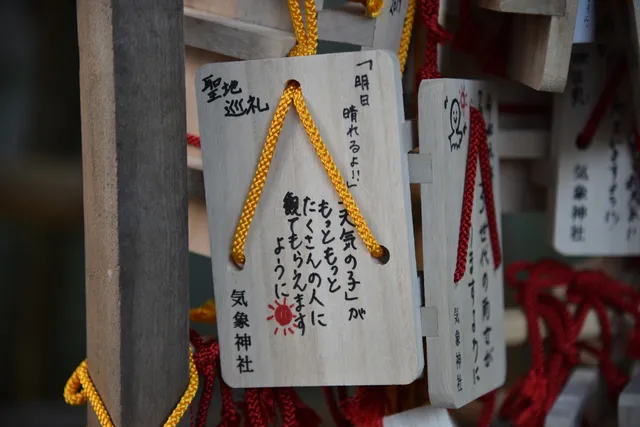 聖地
巡礼
「明日
晴れるよ!!」
「天気の子」が
もっともっと
たくさんの人に
観てもらえます
ように
気象神社
気象神社
気象神社